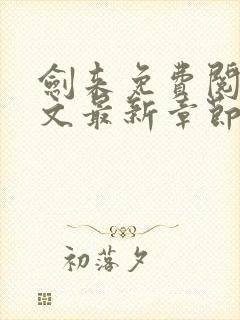 劍来免費閱
文最新章節
初落夕